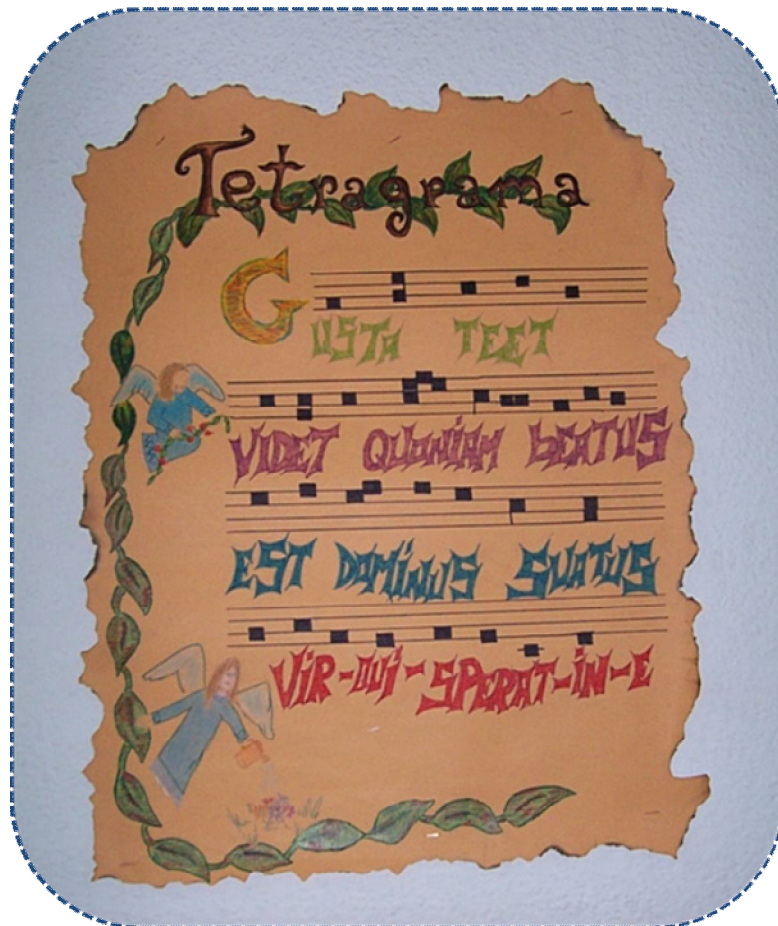 Tetragrama
GUSTA TEET
VIDET QUONIAM BEATUS
EST DOMINUS SUATUS
VIR-QUI-SPERAT-IN-E